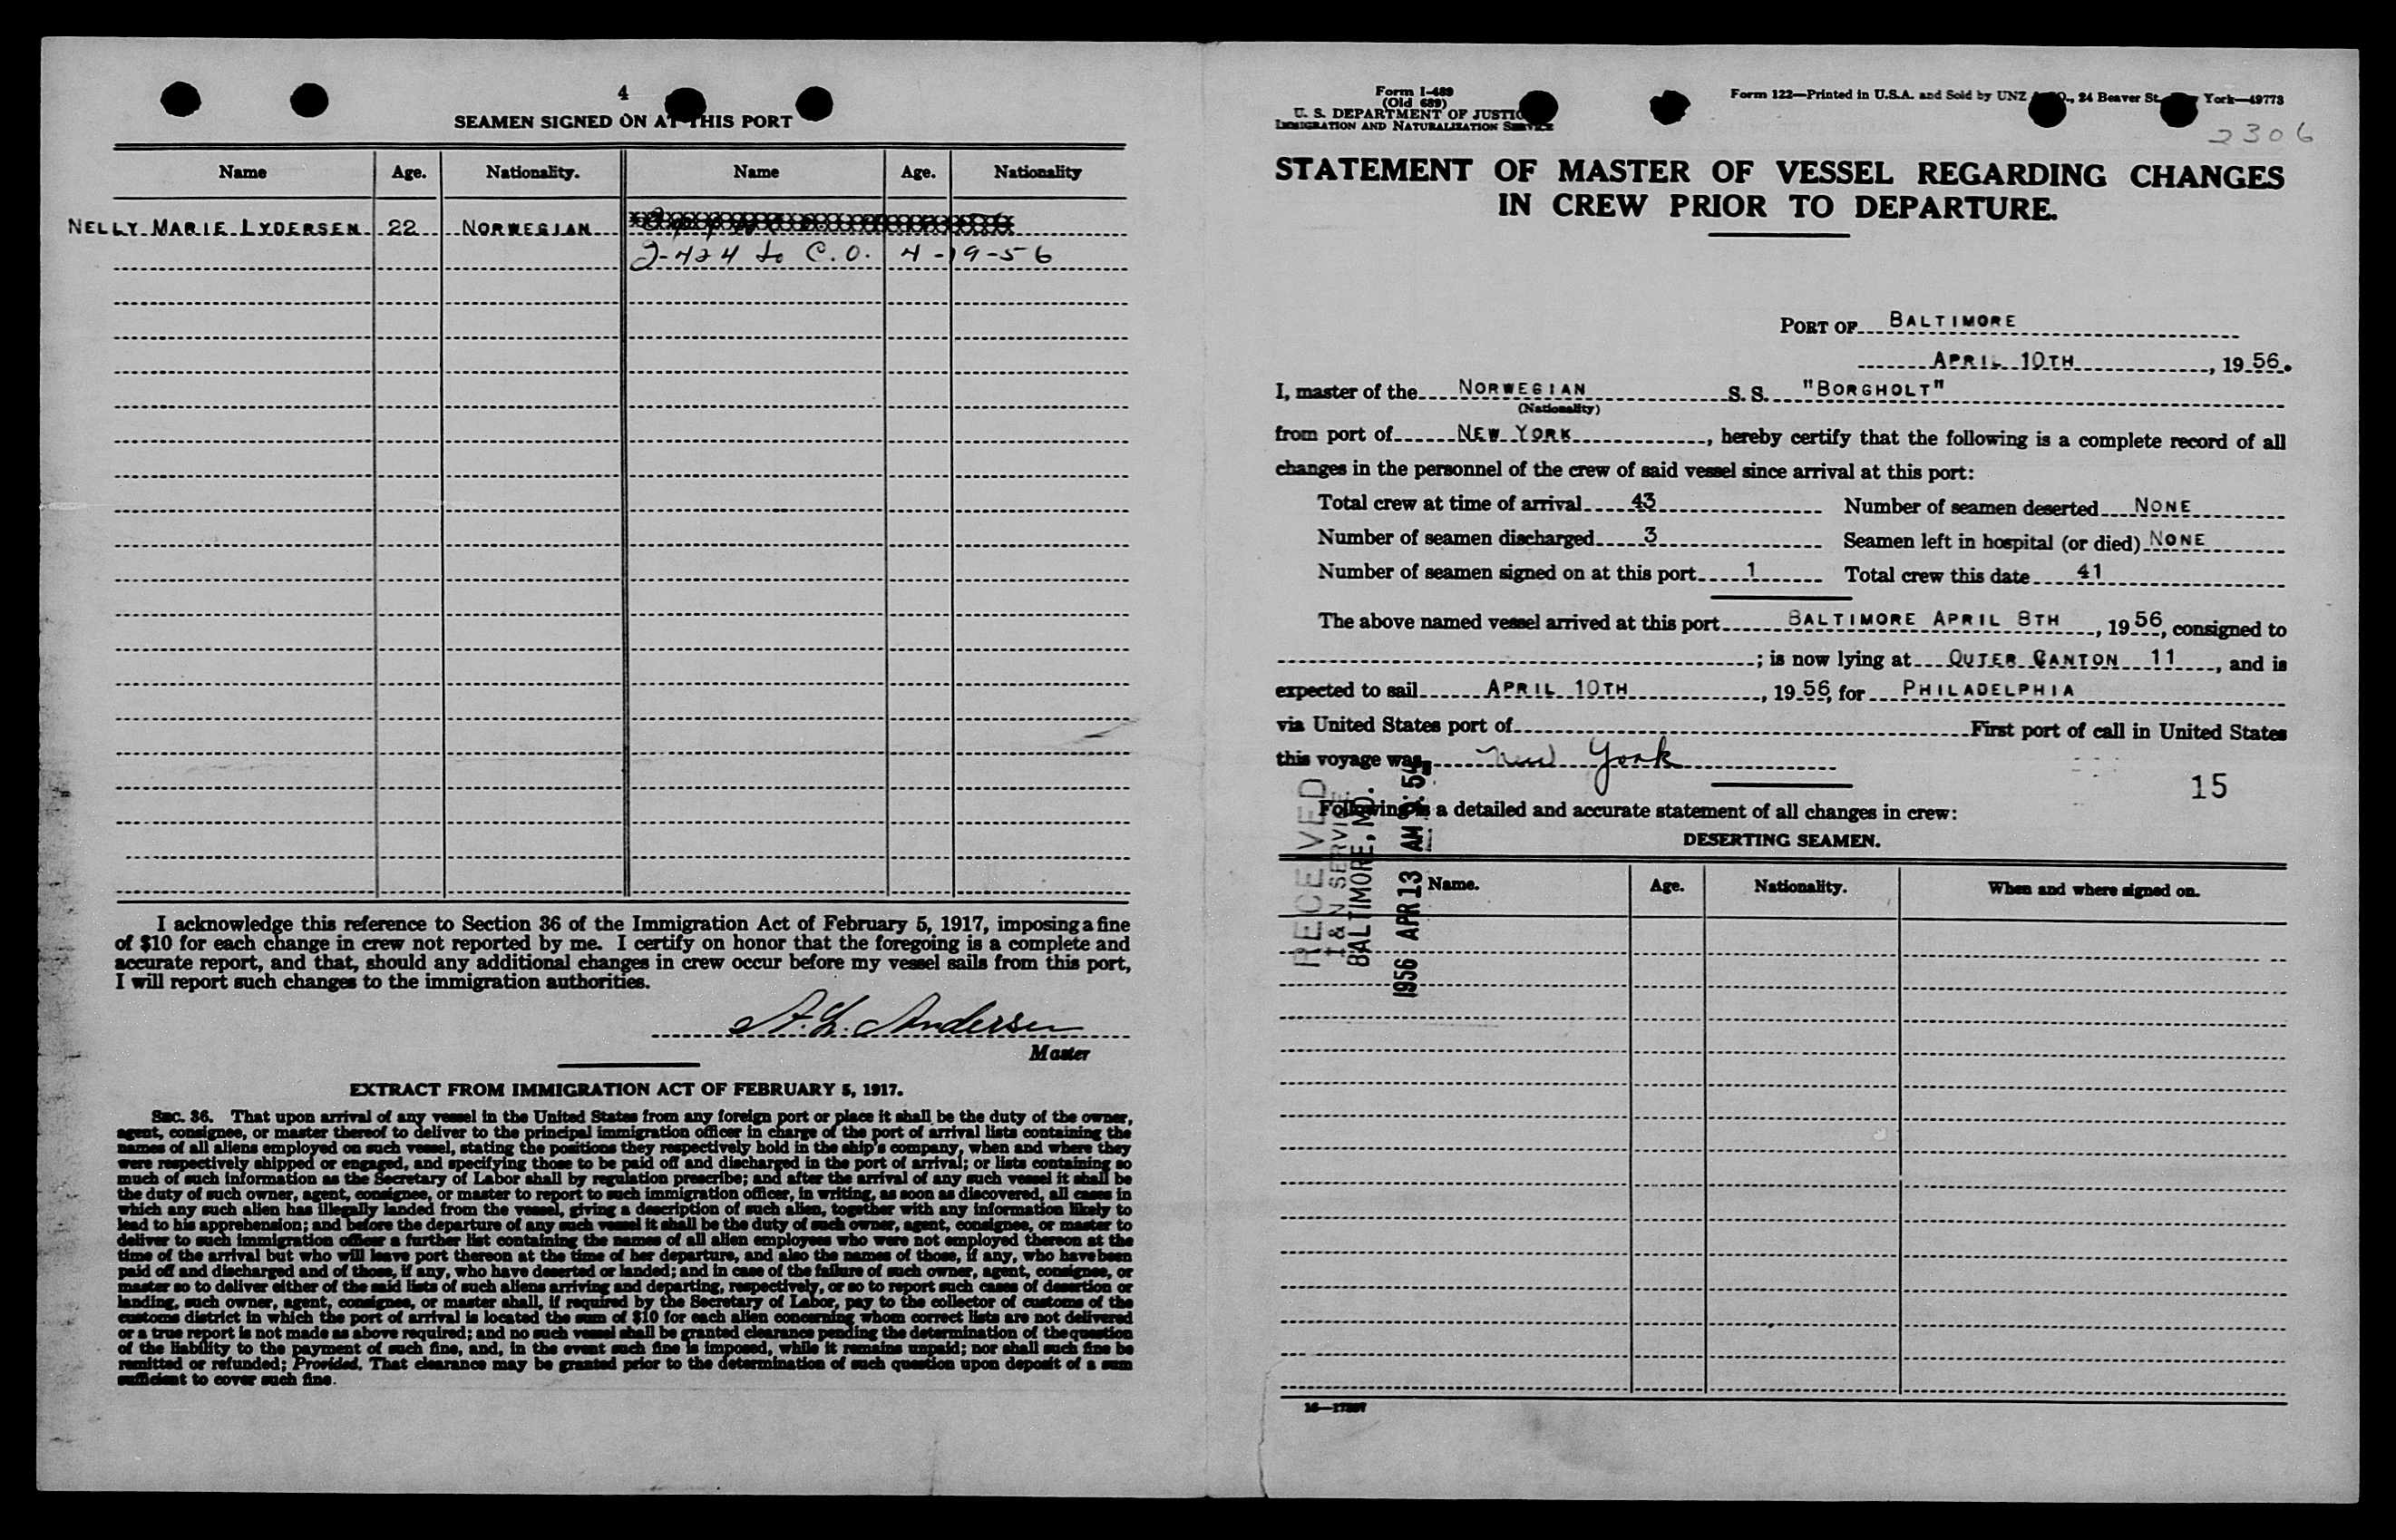 4
SEAMEN SIGNED ON AT THIS PORT
Name Age. Nationality. Name Age. Nationality
NELLY MARIE LYDERSEN 22 NORWEGIAN
to C.O. 4-19-56
I acknowledge this reference to Section 36 of the Immigration Act of February 5, 1917, imposing a fine
of $10 for each change in crew not reported by me. I certify on honor that the foregoing is a complete and
accurate report, and that, should any additional changes in crew occur before my vessel sails from this port,
I will report such changes to the immigration authorities.
Andersen
Master
EXTRACT FROM IMMIGRATION ACT OF FEBRUARY 5, 1917.
SEC. 36. That upon arrival of any vessel in the United States from any foreign port or place it shall be the duty of the owner,
agent, consignee, or master thereof to deliver to the principal immigration officer in charge of the port of arrival lists containing the
names of all aliens employed on such vessel, stating the positions they respectively hold in the ship's company, when and where they
were respectively shipped or engaged, and specifying those to be paid off and discharged in the port of arrival; or lists containing so
much of such information as the Secretary of Labor shall by regulation prescribe; and after the arrival of any such vessel it shall be
the duty of such owner, agent, consignee, or master to report to such immigration officer, in writing, as soon as discovered, all cases in
which any such alien has illegally landed from the vessel, giving a description of such alien, together with any information likely to
lead to his apprehension; and before the departure of any such vessel it shall be the duty of such owner, agent, consignee, or master to
deliver to such immigration officer a further list containing the names of all alien employees who were not employed thereon at the
time of the arrival but who will leave port thereon at the time of her departure, and also the names of those, if any, who have been
paid off and discharged and of those, if any, who have deserted or landed; and in case of the failure of such owner, agent, consignee, or
master so to deliver either of the said lists of such aliens arriving and departing, respectively, or so to report such cases of desertion or
landing, such owner, agent, consignee, or master shall, if required by the Secretary of Labor, pay to the collector of customs of the
customs district in which the port of arrival is located the sum of $10 for each alien concerning whom correct lists are not delivered
or a true report is not made as above required; and no such vessel shall be granted clearance pending the determination of the question
of the liability to the payment of such fine, and, in the event such fine is imposed, while it remains unpaid; nor shall such fine be
remitted or refunded; Provided, That clearance may be granted prior to the determination of such question upon deposit of a sum
sufficient to cover such fine.
Form I-489
(Old 689)
U. S. DEPARTMENT OF JUSTICE
IMMIGRATION AND NATURALIZATION SERVICE
Form 122—Printed in U.S.A. and Sold by UNZ 24 Beaver St., York—49773
2306
STATEMENT OF MASTER OF VESSEL REGARDING CHANGES
IN CREW PRIOR TO DEPARTURE.
PORT OF BALTIMORE
APRIL 10TH, 1956.
I, master of the NORWEGIAN S. S. "BORGHOLT"
(Nationality)
from port of NEW YORK, hereby certify that the following is a complete record of all
changes in the personnel of the crew of said vessel since arrival at this port:
Total crew at time of arrival 43 Number of seamen deserted NONE
Number of seamen discharged 3 Seamen left in hospital (or died) NONE
Number of seamen signed on at this port 1 Total crew this date 41
The above named vessel arrived at this port BALTIMORE APRIL 8TH, 1956, consigned to
; is now lying at OUTER CANTON 11, and is
expected to sail APRIL 10TH, 1956, for PHILADELPHIA
via United States port of First port of call in United States
this voyage was New York
15
Following is a detailed and accurate statement of all changes in crew:
DESERTING SEAMEN.
Name. Age. Nationality. When and where signed on.
RECEIVED
I & N SERVICE
BALTIMORE, MD.
1956 APR 13 AM